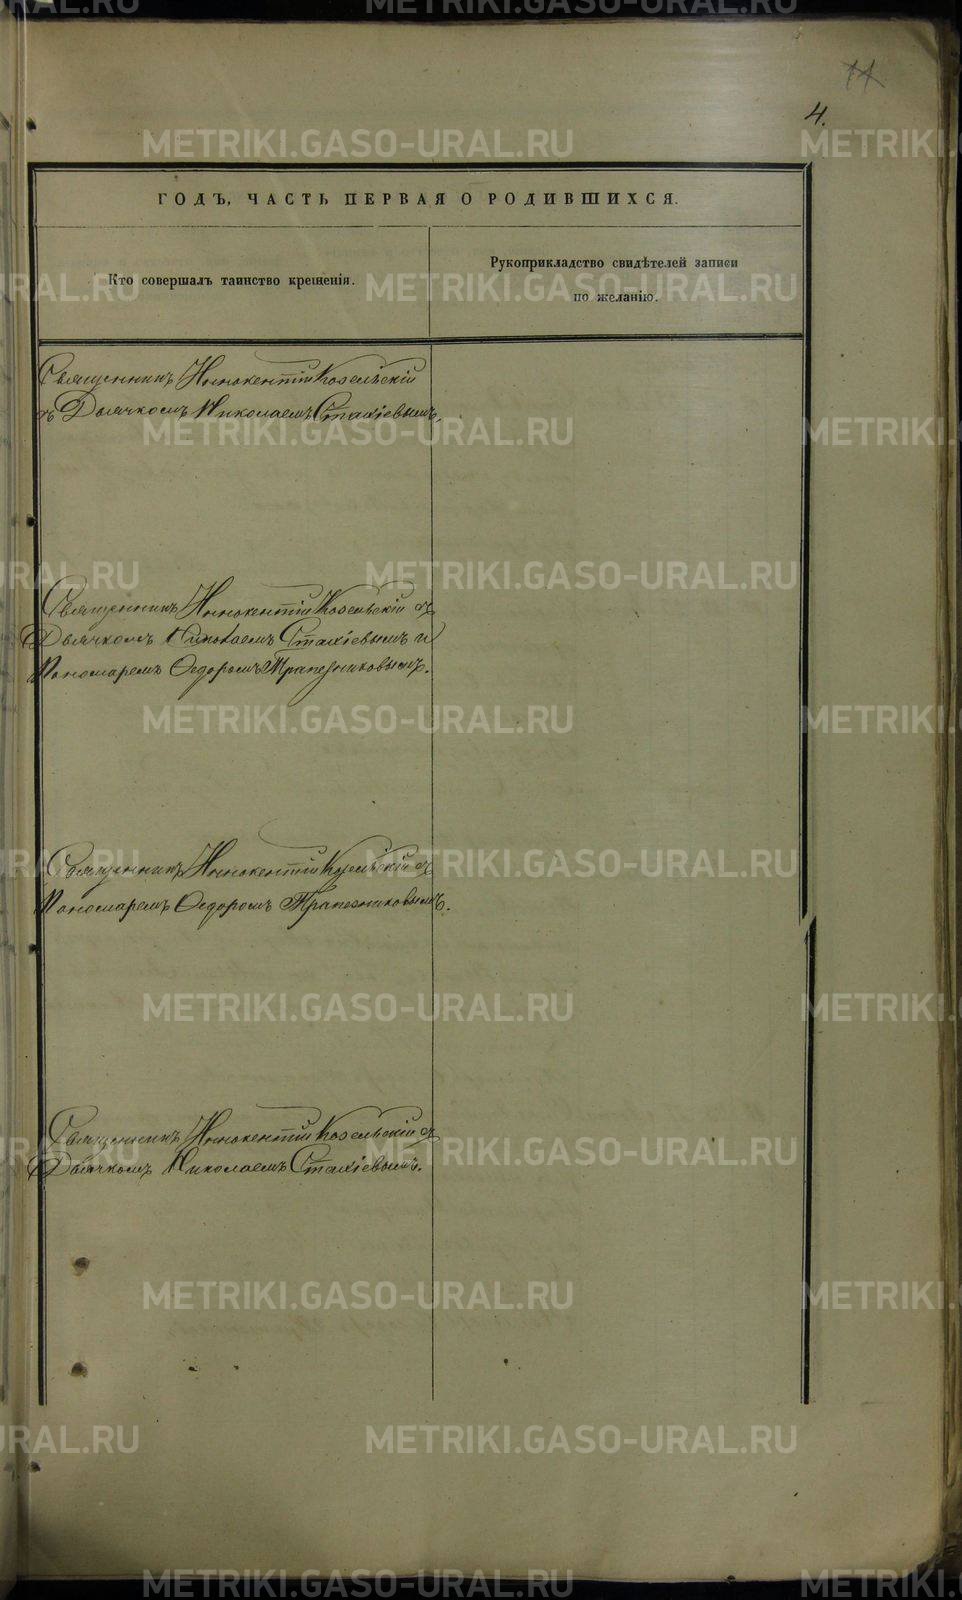 11
4.
ГОДЪ, ЧАСТЬ ПЕРВАЯ О РОДИВШИХСЯ.
Кто совершалъ таинство крещенія.
Рукоприкладство свидѣтелей записи
по желанію.
Священникъ Иннокентій Козельскій
съ Дьячкомъ Николаемъ Стахіевымъ.
Священникъ Иннокентій Козельскій съ
Дьячкомъ Николаемъ Стахіевымъ и
Пономаремъ Ѳедоромъ Трапезниковымъ.
Священникъ Иннокентій Козельскій съ
Пономаремъ Ѳедоромъ Трапезниковымъ.
Священникъ Иннокентій Козельскій съ
Дьячкомъ Николаемъ Стахіевымъ.
METRIKI.GASO-URAL.RU